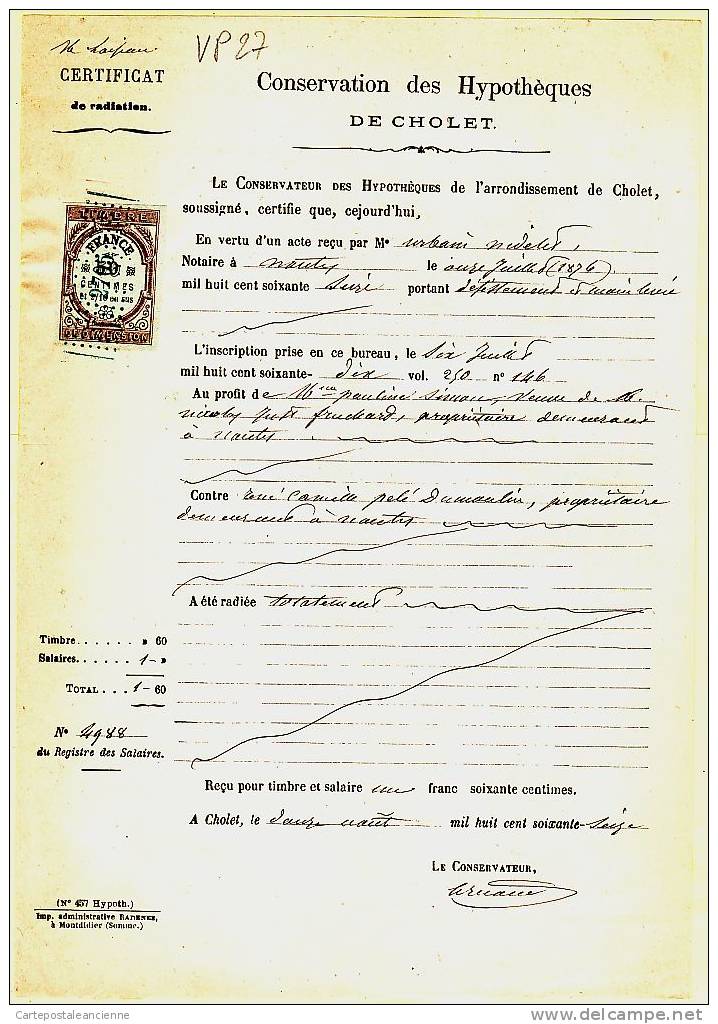 VP27
CERTIFICAT
de radiation.
Conservation des Hypothèques
DE CHOLET.
LE CONSERVATEUR DES HYPOTHÈQUES de l'arrondissement de Cholet,
soussigné, certifie que, cejourd'hui,
En vertu d'un acte reçu par Me urbain
Notaire à nantes le onze Juillet (1876)
mil huit cent soixante Seize portant désistement et main levée
TIMBRE
FRANCE
50
CENTIMES
ET 2/10 EN SUS
DE DIMENSION
L'inscription prise en ce bureau, le Six Juillet
mil huit cent soixante- Dix vol. 250 no 146
Au profit de Mme pauline Simon, veuve de M.
Just fruchard, propriétaire demeurant
à nantes
Contre rené Camille pelé Dumoulin, propriétaire
demeurant à nantes
A été radiée totalement
Timbre. . . . . . » 60
Salaires. . . . . . 1 - »
TOTAL . . . 1 - 60
No 4988
du Registre des Salaires.
Reçu pour timbre et salaire un franc soixante centimes.
A Cholet, le Douze août mil huit cent soixante-Seize
LE CONSERVATEUR,
(No 457 Hypoth.)
Imp. administrative RADENEZ,
à Montdidier (Somme.)
Cartepostaleancienne
www.delcampe.net